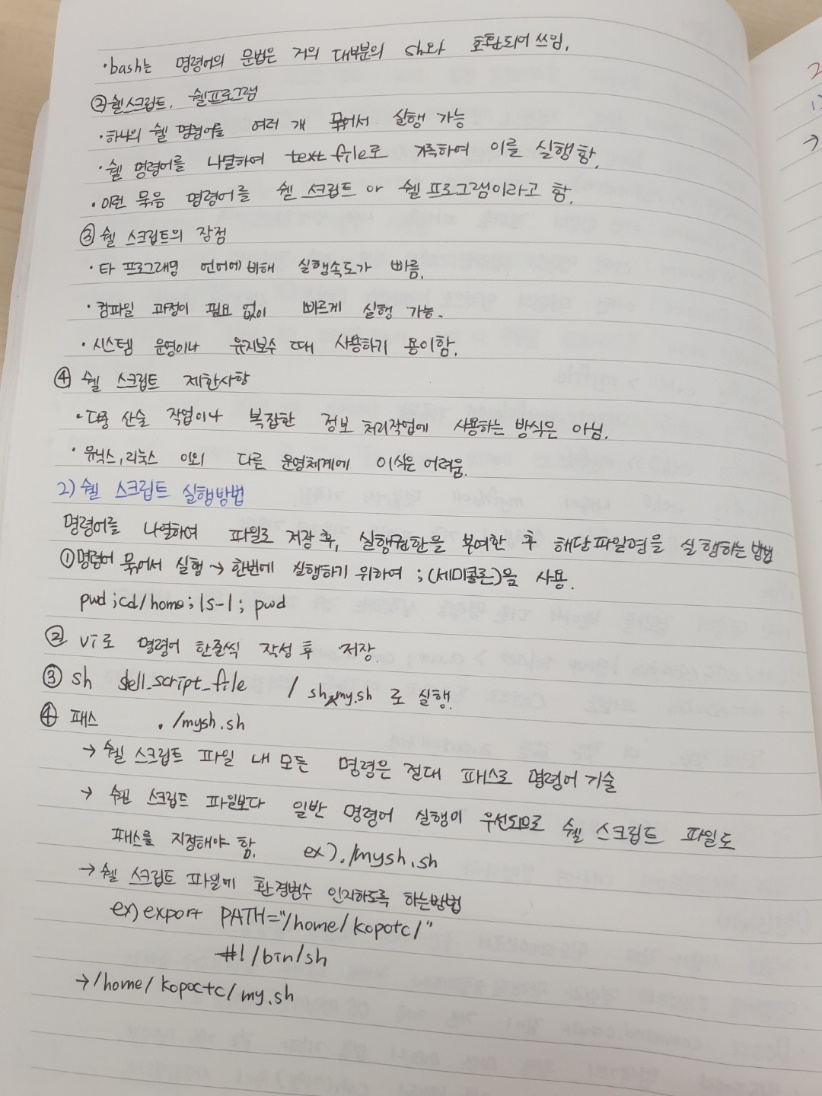 ·bash는 명령어의 문법은 거의 대부분의 sh와 호환되어 쓰임.
②쉘스크립트, 쉘프로그램
·하나의 쉘 명령어를 여러 개 묶어서 실행 가능
·쉘 명령어를 나열하여 text file로 저장하여 이를 실행함.
·이런 묶음 명령어를 쉘 스크립트 or 쉘 프로그램이라고 함.
③ 쉘 스크립트의 장점
·타 프로그래밍 언어에 비해 실행속도가 빠름.
·컴파일 과정이 필요 없이 빠르게 실행 가능.
·시스템 운영이나 유지보수 때 사용하기 용이함.
④ 쉘 스크립트 제한사항
·다중 산술 작업이나 복잡한 정보 처리작업에 사용하는 방식은 아님.
·유닉스, 리눅스 이외 다른 운영체계에 이식은 어려움.
2) 쉘 스크립트 실행방법
명령어를 나열하여 파일로 저장 후, 실행권한을 부여한 후 해당파일명을 실행하는 방법
①명령어 묶어서 실행 → 한번에 실행하기 위하여 ;(세미콜론)을 사용.
pwd;cd/home;ls-l; pwd
② vi로 명령어 한줄씩 작성 후 저장
③ sh shell_script_file / sh my.sh 로 실행.
④ 패스 ./mysh.sh
→ 쉘 스크립트 파일 내 모든 명령은 절대 패스로 명령어 기술
→ 쉘 스크립트 파일보다 일반 명령어 실행이 우선되므로 쉘 스크립트 파일도
패스를 지정해야 함. ex)./mysh.sh
→ 쉘 스크립트 파일에 환경변수 인지하도록 하는방법
ex) export PATH="/home/kopotc/"
#!/bin/sh
→/home/kopoctc/my.sh